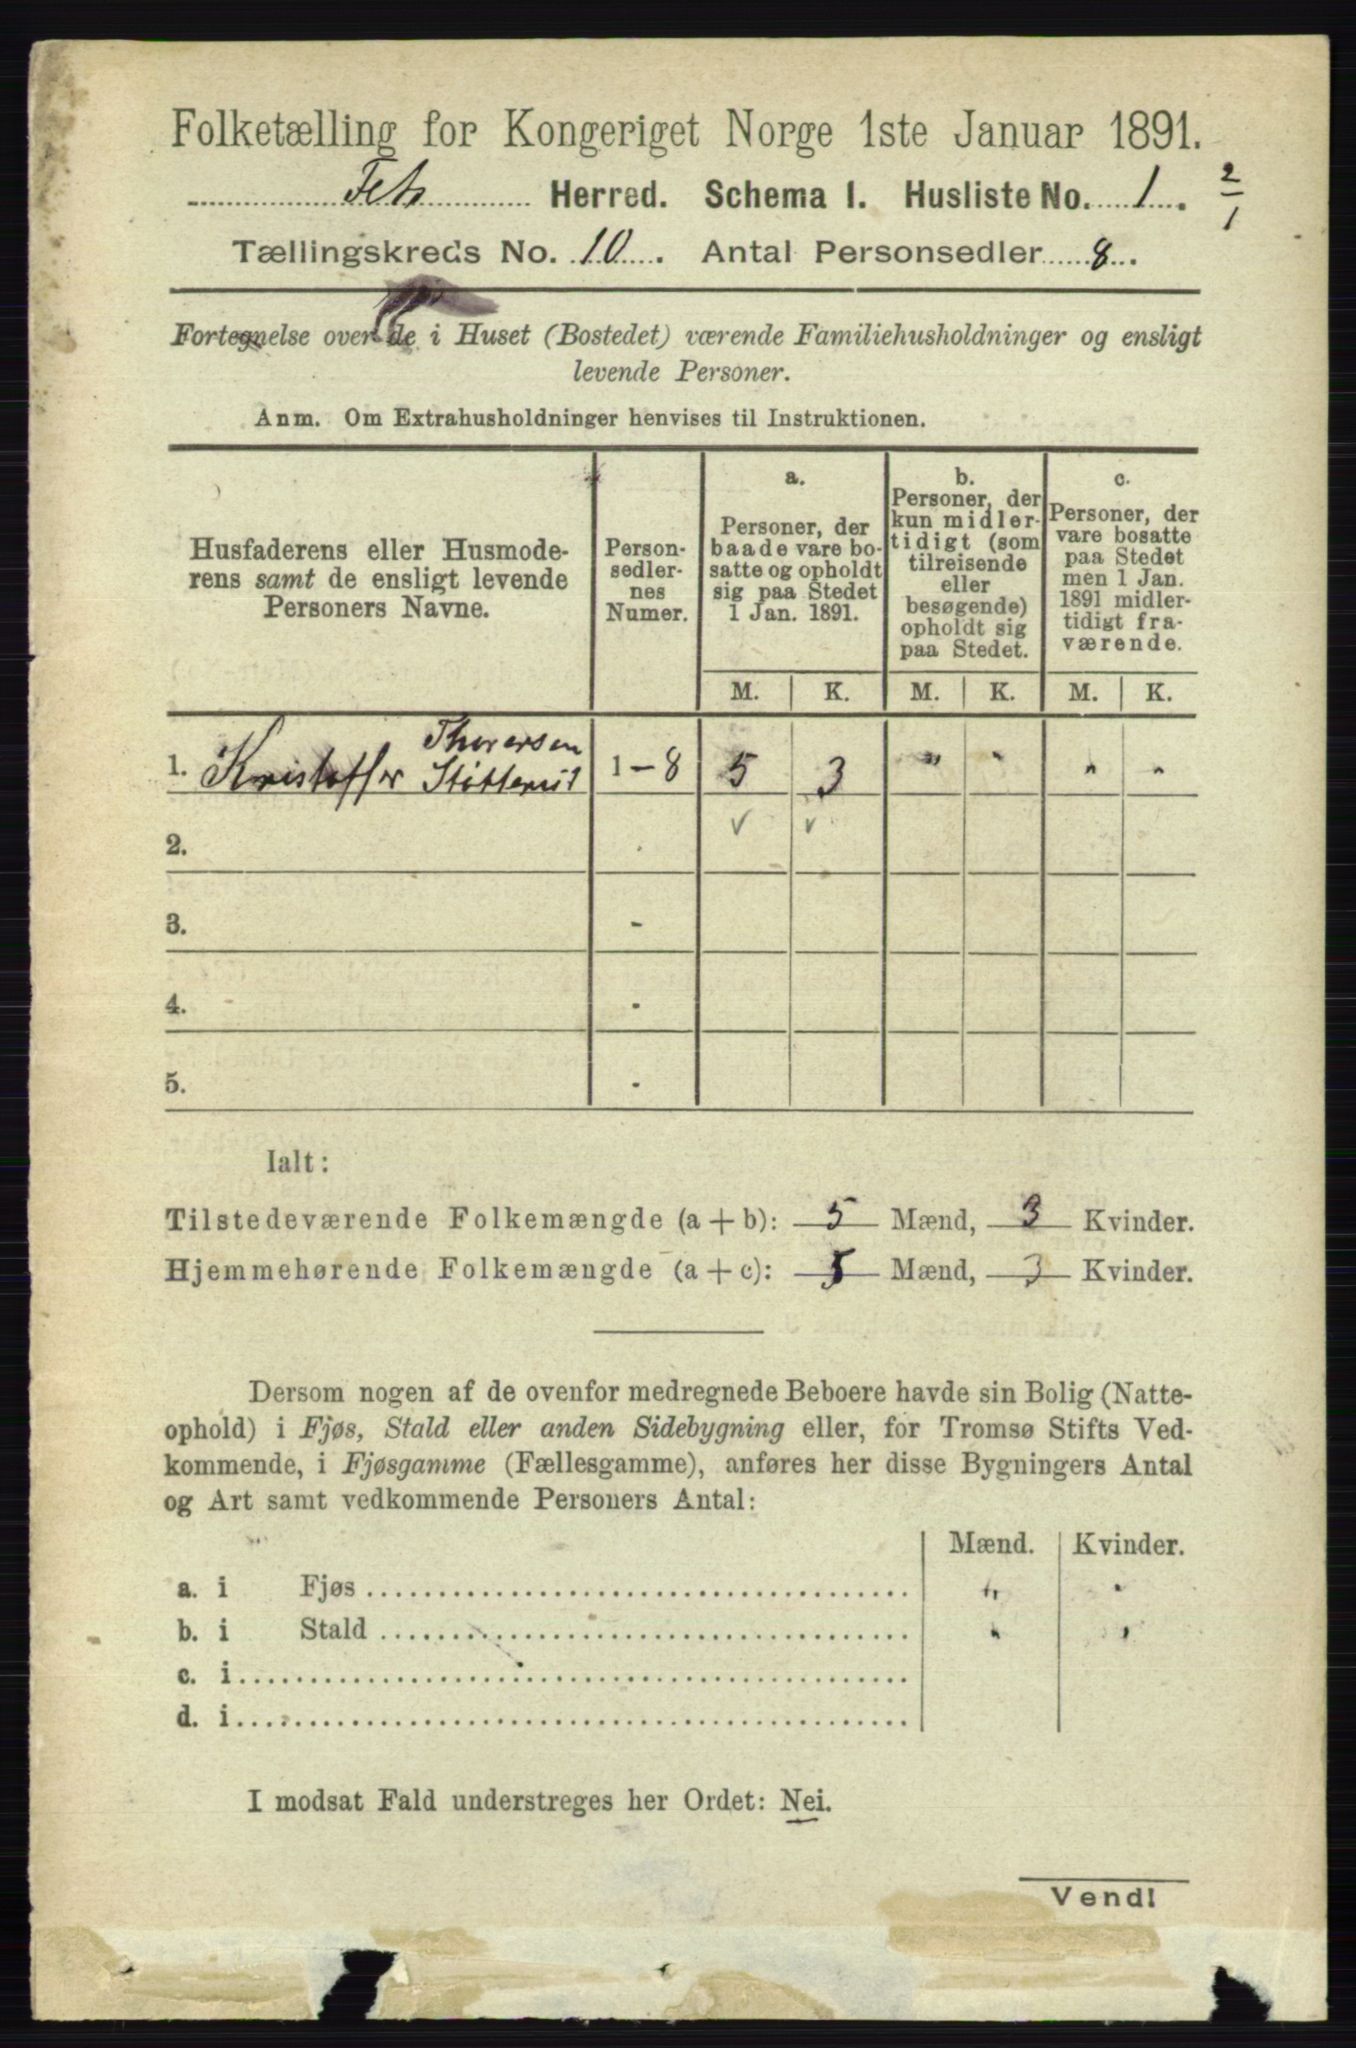 Folketælling for Kongeriget Norge 1ste Januar 1891.
Fet Herred. Schema I. Husliste No. 1. 2/1
Tællingskreds No. 10. Antal Personsedler 8.
Fortegnelse over de i Huset (Bostedet) værende Familiehusholdninger og ensligt
levende Personer.
Anm. Om Extrahusholdninger henvises til Instruktionen.
Husfaderens eller Husmode-
rens samt de ensligt levende
Personers Navne.
Person-
sedler-
nes
Numer.
a.
Personer, der
baade vare bo-
satte og opholdt
sig paa Stedet
1 Jan. 1891.
b.
Personer, der
kun midler-
tidigt (som
tilreisende
eller
besøgende)
opholdt sig
paa Stedet.
c.
Personer, der
vare bosatte
paa Stedet
men 1 Jan.
1891 midler-
tidigt fra-
værende.
M. K. M. K. M. K.
Thoresen
1. Kristoffer 1-8 5 3 " " " "
2.
3. -
4. -
5. -
Ialt:
Tilstedeværende Folkemængde (a + b): 5 Mænd, 3 Kvinder.
Hjemmehørende Folkemængde (a + c): 5 Mænd, 3 Kvinder.
Dersom nogen af de ovenfor medregnede Beboere havde sin Bolig (Natte-
ophold) i Fjøs, Stald eller anden Sidebygning eller, for Tromsø Stifts Ved-
kommende, i Fjøsgamme (Fællesgamme), anføres her disse Bygningers Antal
og Art samt vedkommende Personers Antal:
Mænd. Kvinder.
a. i Fjøs " "
b. i Stald " "
c. i
d. i
I modsat Fald understreges her Ordet: Nei.
Vend!